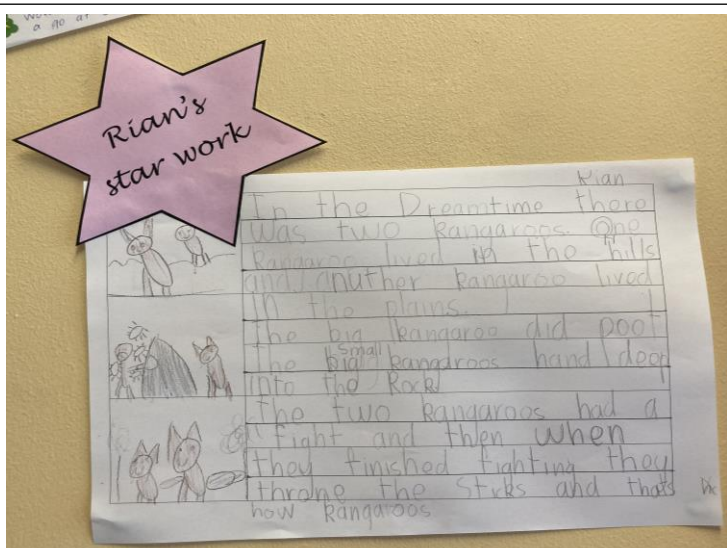 a go at
Rian's
star work
Rian
In the Dreamtime there
was two kangaroos. One
kangaroo lived in the hills
and anuther kangaroo lived
in the plains.
The big kangaroo did poot
the small kangaroos hand deep
into the Rock
The two kangaroos had a
fight and then when
they finished fighting they
throne the sticks and thats
how kangaroos